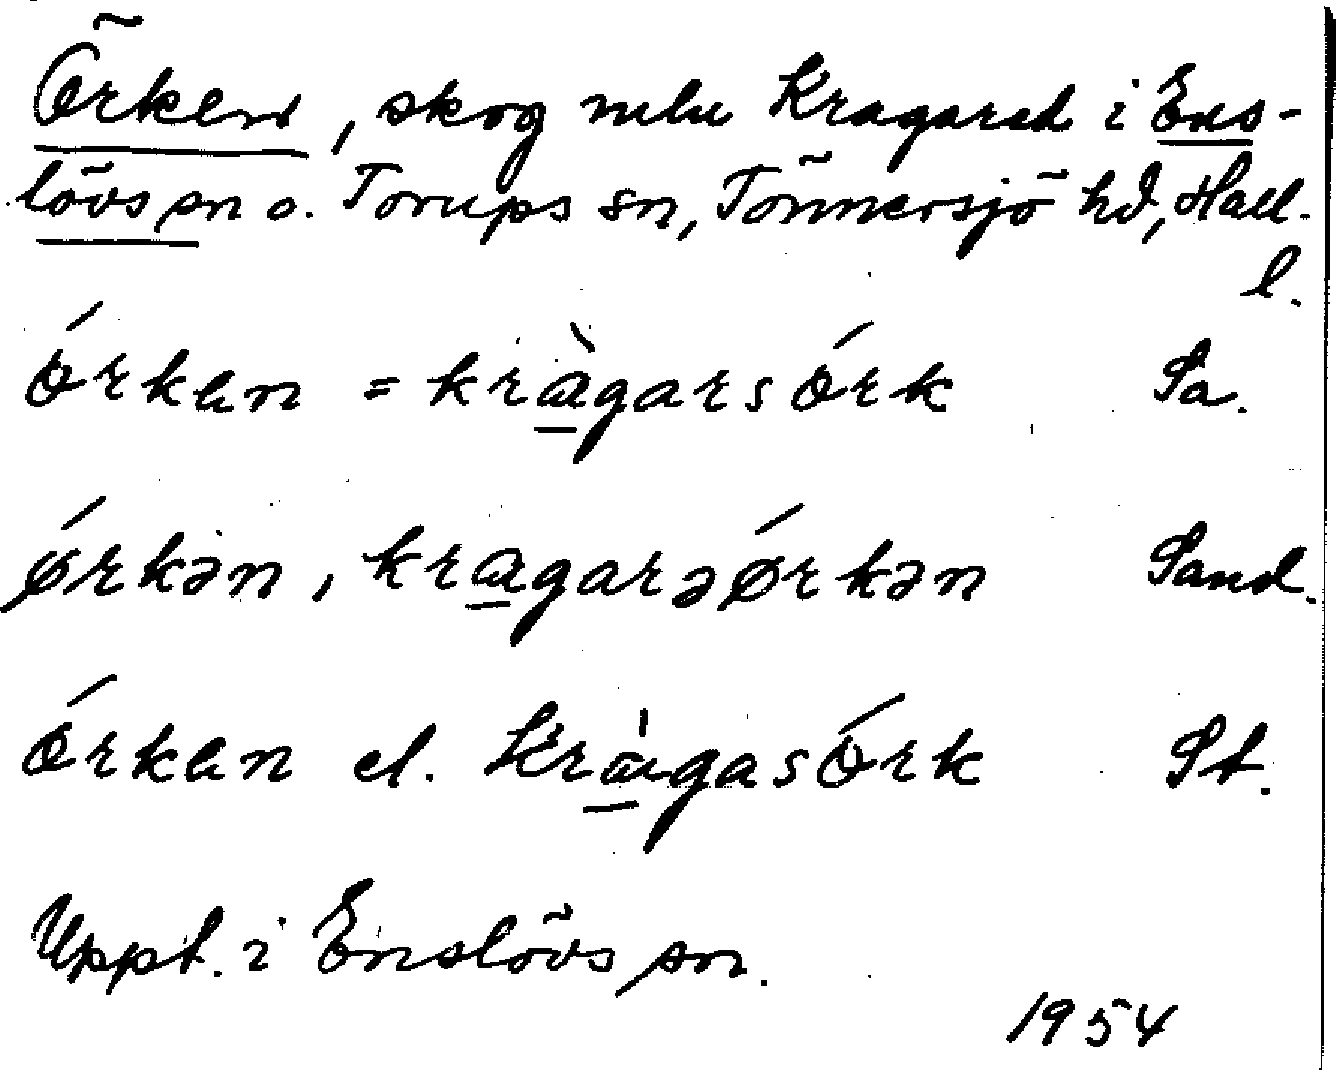 Örken, skog mln Kragared i Ens-
lövs sn o. Torups sn, Tönnersjö hd, Hall.
l.
órkan = kràgarsórk Sa.
ǿrkən, kragarəǿrkən Sand.
órkan el. kràgasórk St.
Uppt. i Enslövs sn.
1954